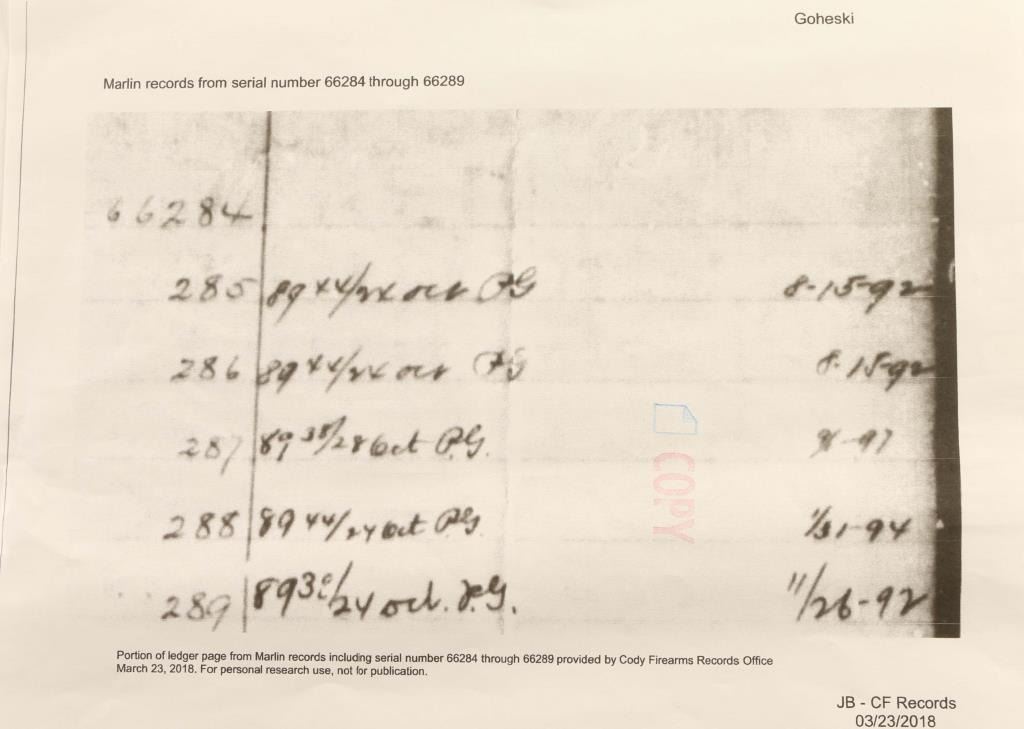 Goheski
Marlin records from serial number 66284 through 66289
66284
285 89 44/24 oct PG 8-15-92
286 89 44/24 oct PG 8-15-92
287 89 38/28 Oct P.G.
288 89 44/24 Oct P.G. 1/31-94
289 89 38/24 oct. P.G. 11/26-92
COPY
Portion of ledger page from Marlin records including serial number 66284 through 66289 provided by Cody Firearms Records Office
March 23, 2018. For personal research use, not for publication.
JB - CF Records
03/23/2018